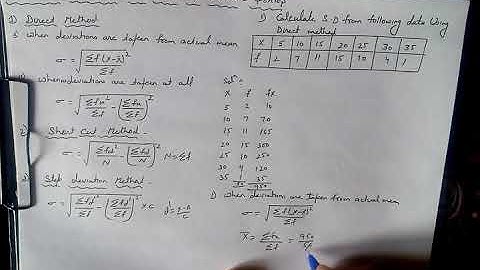 1) Direct Method
when deviations are taken from actual mean
σ = √Σf(x-x̄)²/Σf
when no deviations are taken at all
σ = √Σfx²/Σf - (Σfx/Σf)²
2) Short Cut Method -
σ = √Σfd²/N - (Σfd/N)² N=Σf
3) Step deviation Method -
σ = √Σfd'²/Σf - (Σfd'/Σf)² × C
1) Calculate S.D from following data Using
Direct method
X 5 10 15 20 25 30 35
f 2 7 11 15 10 4 1
X f fx
5 2 10
10 7 70
15 11 165
20 15 300
25 10 250
30 4 120
35 1 35
950
1) when deviations are taken from actual mean
σ = √Σf(x-x̄)²/Σf
X̄ = Σfx/Σf = 950/